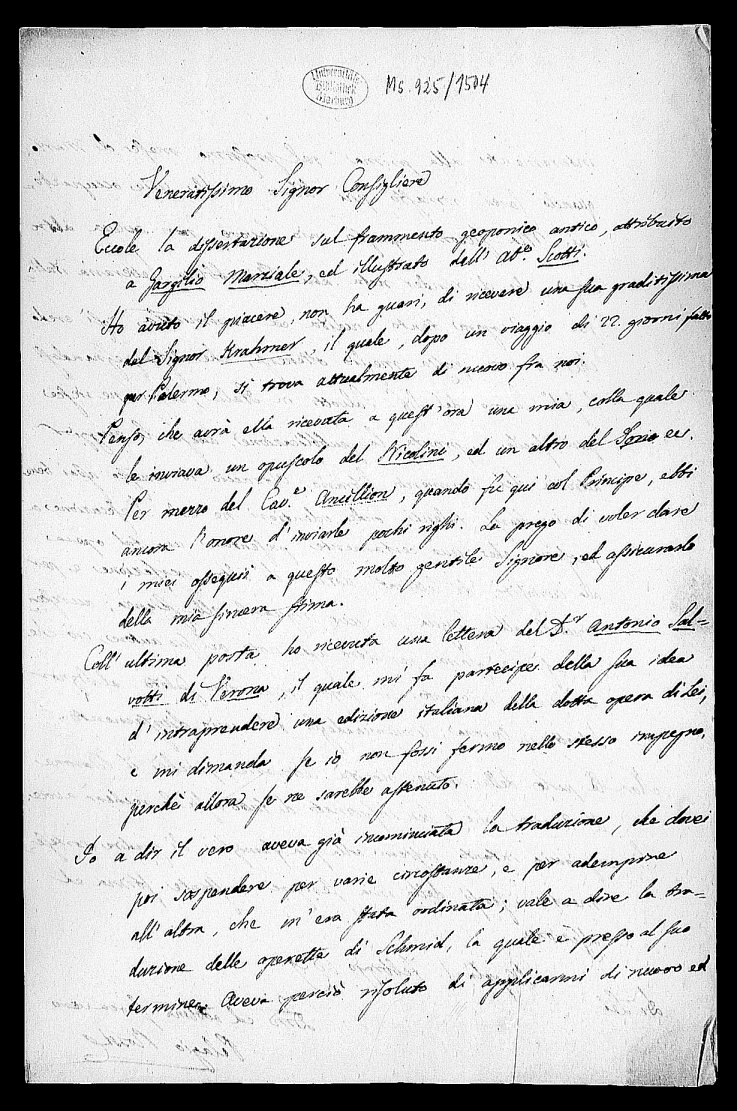 Universitäts
Bibliothek
Marburg
Ms. 925/1504
Veneratissimo Signor Consigliere
Eccole la dissertazione sul frammento geoponico antico, attribuito
a Gargilio Marziale, ed illustrato dall' Ab.e Scotti.
Ho avuto il piacere non ha guari, di ricevere una sua graditissima
dal Signor Krahmer, il quale, dopo un viaggio di 22. giorni fatto
per Palermo, si trova attualmente di nuovo fra noi.
Penso, che avrà ella ricevuta a quest'ora una mia, colla quale
le inviava un opuscolo del Nicolini, ed un altro del Sorio ec.
Per mezzo del Cav.e Ancillion, quando fu qui col Principe, ebbi
ancora l'onore d'inviarle pochi righi. La prego di voler dare
i miei ossequii a questo molto gentile Signore, ed assicurarlo
della mia sincera stima.
Coll' ultima posta ho ricevuta una lettera del D.r Antonio Sal=
votti di Verona, il quale mi fa partecipe della sua idea
d'intraprendere una edizione italiana della dotta opera di Lei,
e mi dimanda se io non fossi fermo nello stesso impegno,
perchè allora se ne sarebbe astenuto.
Io a dir il vero aveva già incominciata la traduzione, che dovei
poi sospendere per varie circostanze, e per adempire
all' altra, che m'era stata ordinata; vale a dire la tra=
duzione delle operette di Schmid, la quale è presso al suo
termine. Aveva perciò risoluto di applicarmi di nuovo ed